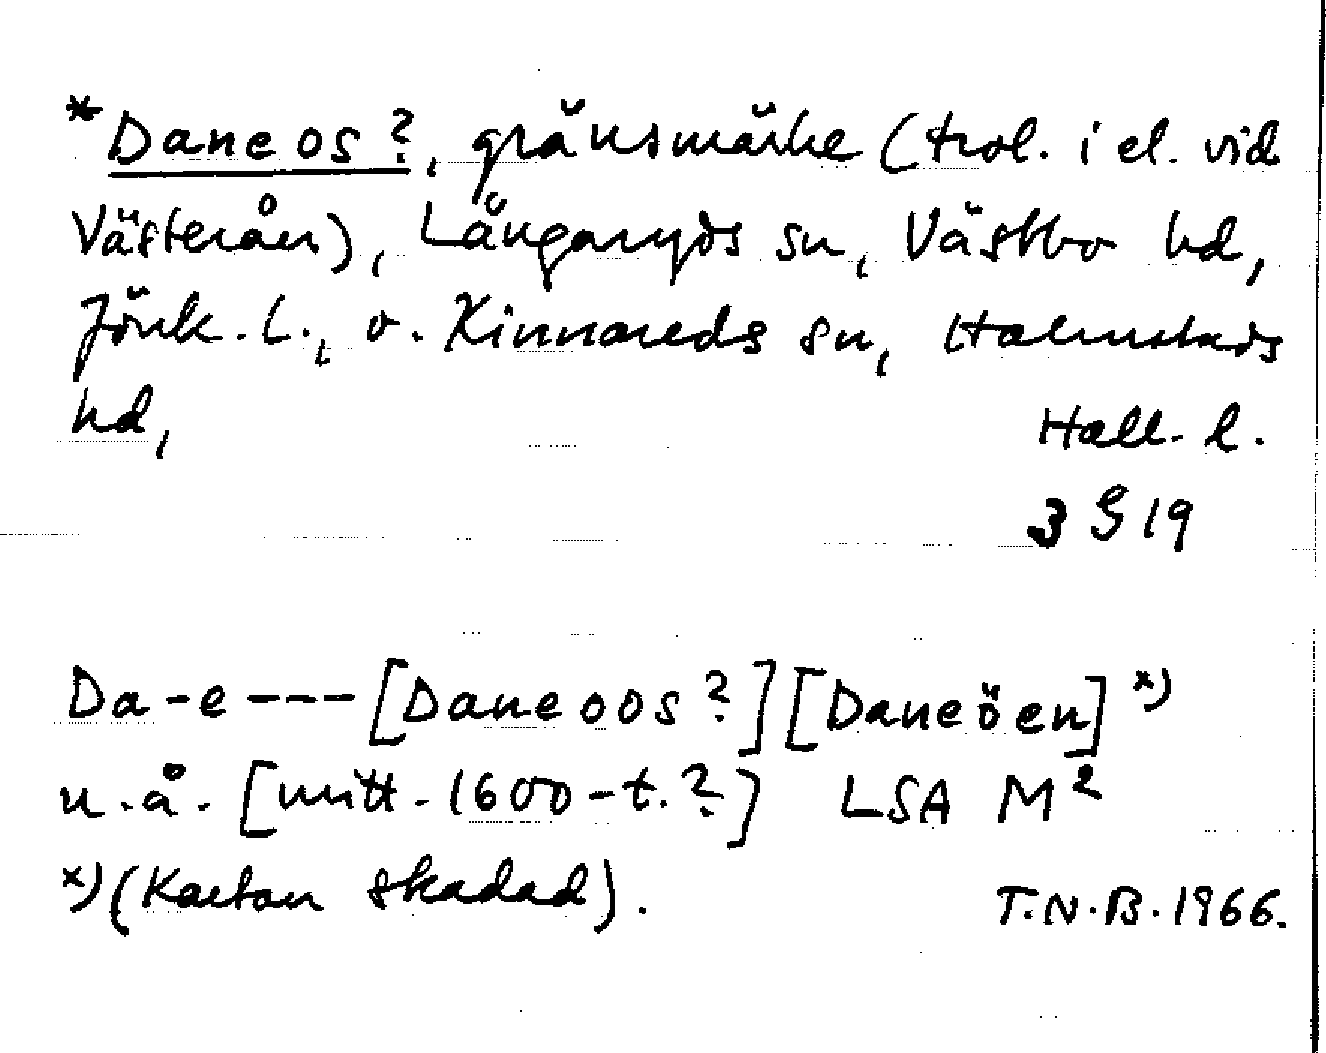 *Daneos?, gränsmärke (trol. i el. vid
Västerån), Långaryds sn, Västbo hd,
Jönk. l., o. Kinnareds sn, Halmstads
hd, Hall. l.
3 § 19
Da-e---[Daneoos?][Daneöen] x)
u.å. [mitt. 1600-t.?] LSA M²
x)(Kartan skadad). T.N.B. 1966.